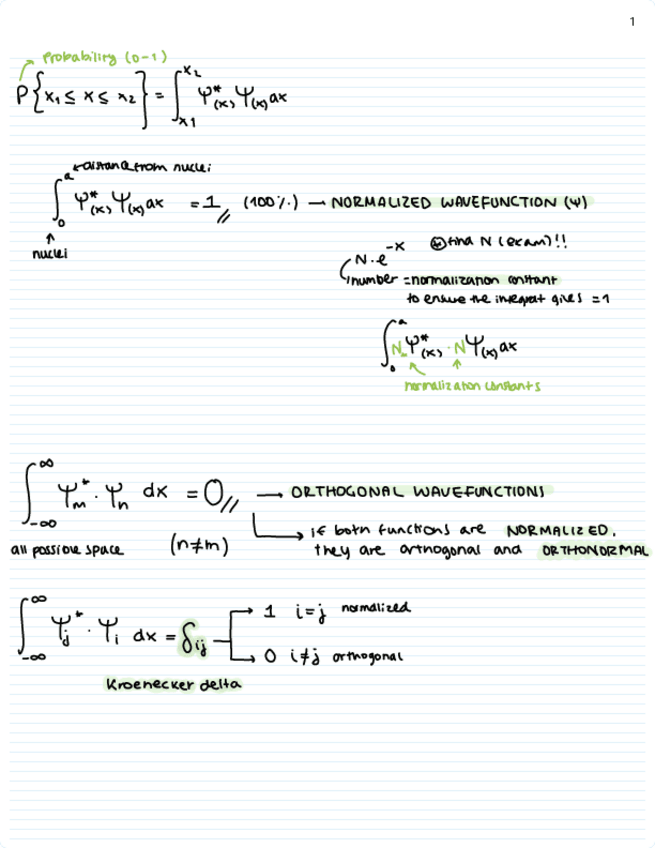 1
Probability (0-1)
P{x₁ ≤ x ≤ x₂} = ∫_{x1}^{x2} Ψ*(x) Ψ(x) dx
distance from nuclei
∫_0^a Ψ*(x) Ψ(x) dx = 1 // (100%) → NORMALIZED WAVEFUNCTION (Ψ)
nuclei
find N (exam)!!
N·e^{-x}
number = normalization constant
to ensure the integral gives = 1
∫_0^a N Ψ*(x) · N Ψ(x) dx
normalization constants
∫_{-∞}^{∞} Ψ*_m · Ψ_n dx = 0 // → ORTHOGONAL WAVEFUNCTIONS
all possible space (n≠m) → if both functions are NORMALIZED,
they are orthogonal and ORTHONORMAL
∫_{-∞}^{∞} Ψ*_j · Ψ_i dx = δ_ij
1 i=j normalized
0 i≠j orthogonal
Kroenecker delta